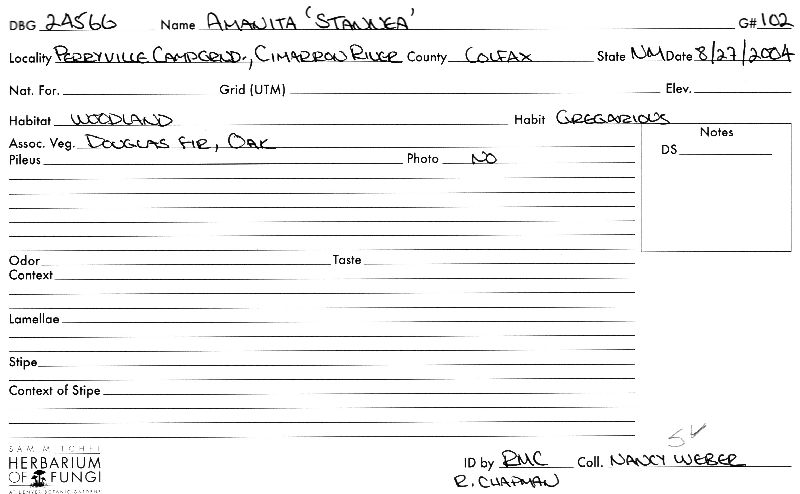 DBG 24566 Name AMANITA 'STANNEA' G# 102
Locality PERRYVILLE CAMPGRND., CIMARRON RIVER County COLFAX State NM Date 8/27/2004
Nat. For. Grid (UTM) Elev.
Habitat WOODLAND Habit GREGARIOUS
Assoc. Veg. DOUGLAS FIR, OAK
Notes
DS
Pileus Photo NO
Odor Taste
Context
Lamellae
Stipe
Context of Stipe
SAM MITCHEL
HERBARIUM
OF FUNGI
AT DENVER BOTANIC GARDENS
ID by RMC Coll. NANCY WEBER
R. CHAPMAN